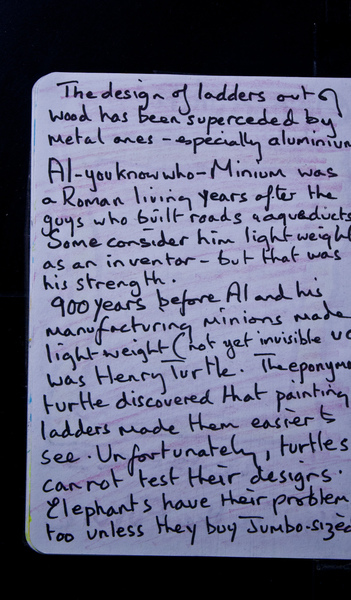 The design of ladders out of
wood has been superceded by
metal ones - especially aluminium
Al-youknowwho-Minium was
a Roman living years after the
guys who built roads & aqueducts
Some consider him light weight
as an inventor - but that was
his strength.
900 years before Al and his
manufacturing minions made
light weight (not yet invisible
was Henry Turtle. The eponymo
turtle discovered that painting
ladders made them easier to
see. Unfortunately, turtles
cannot test their designs.
Elephants have their problem
too unless they buy Jumbo-sized